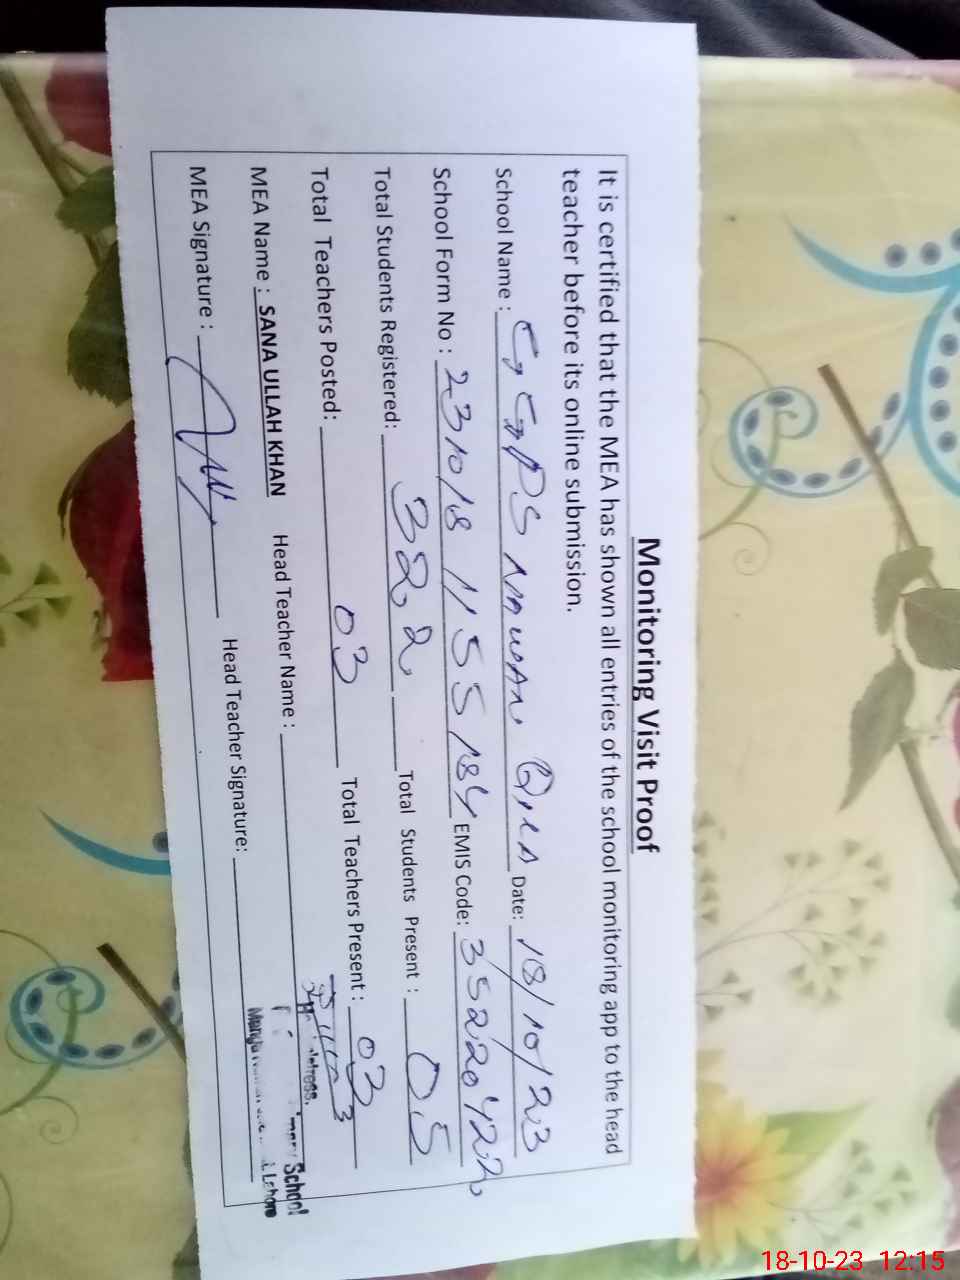 Monitoring Visit Proof
It is certified that the MEA has shown all entries of the school monitoring app to the head
teacher before its online submission.
School Name : GGPS NAWAN QILA Date: 18/10/23
School Form No : 2310181155184 EMIS Code: 35220422
Total Students Registered: 322 Total Students Present : 05
Total Teachers Posted: 03 Total Teachers Present : 03
MEA Name : SANA ULLAH KHAN Head Teacher Name :
MEA Signature : Head Teacher Signature:
School
Lahore
18-10-23 12:15